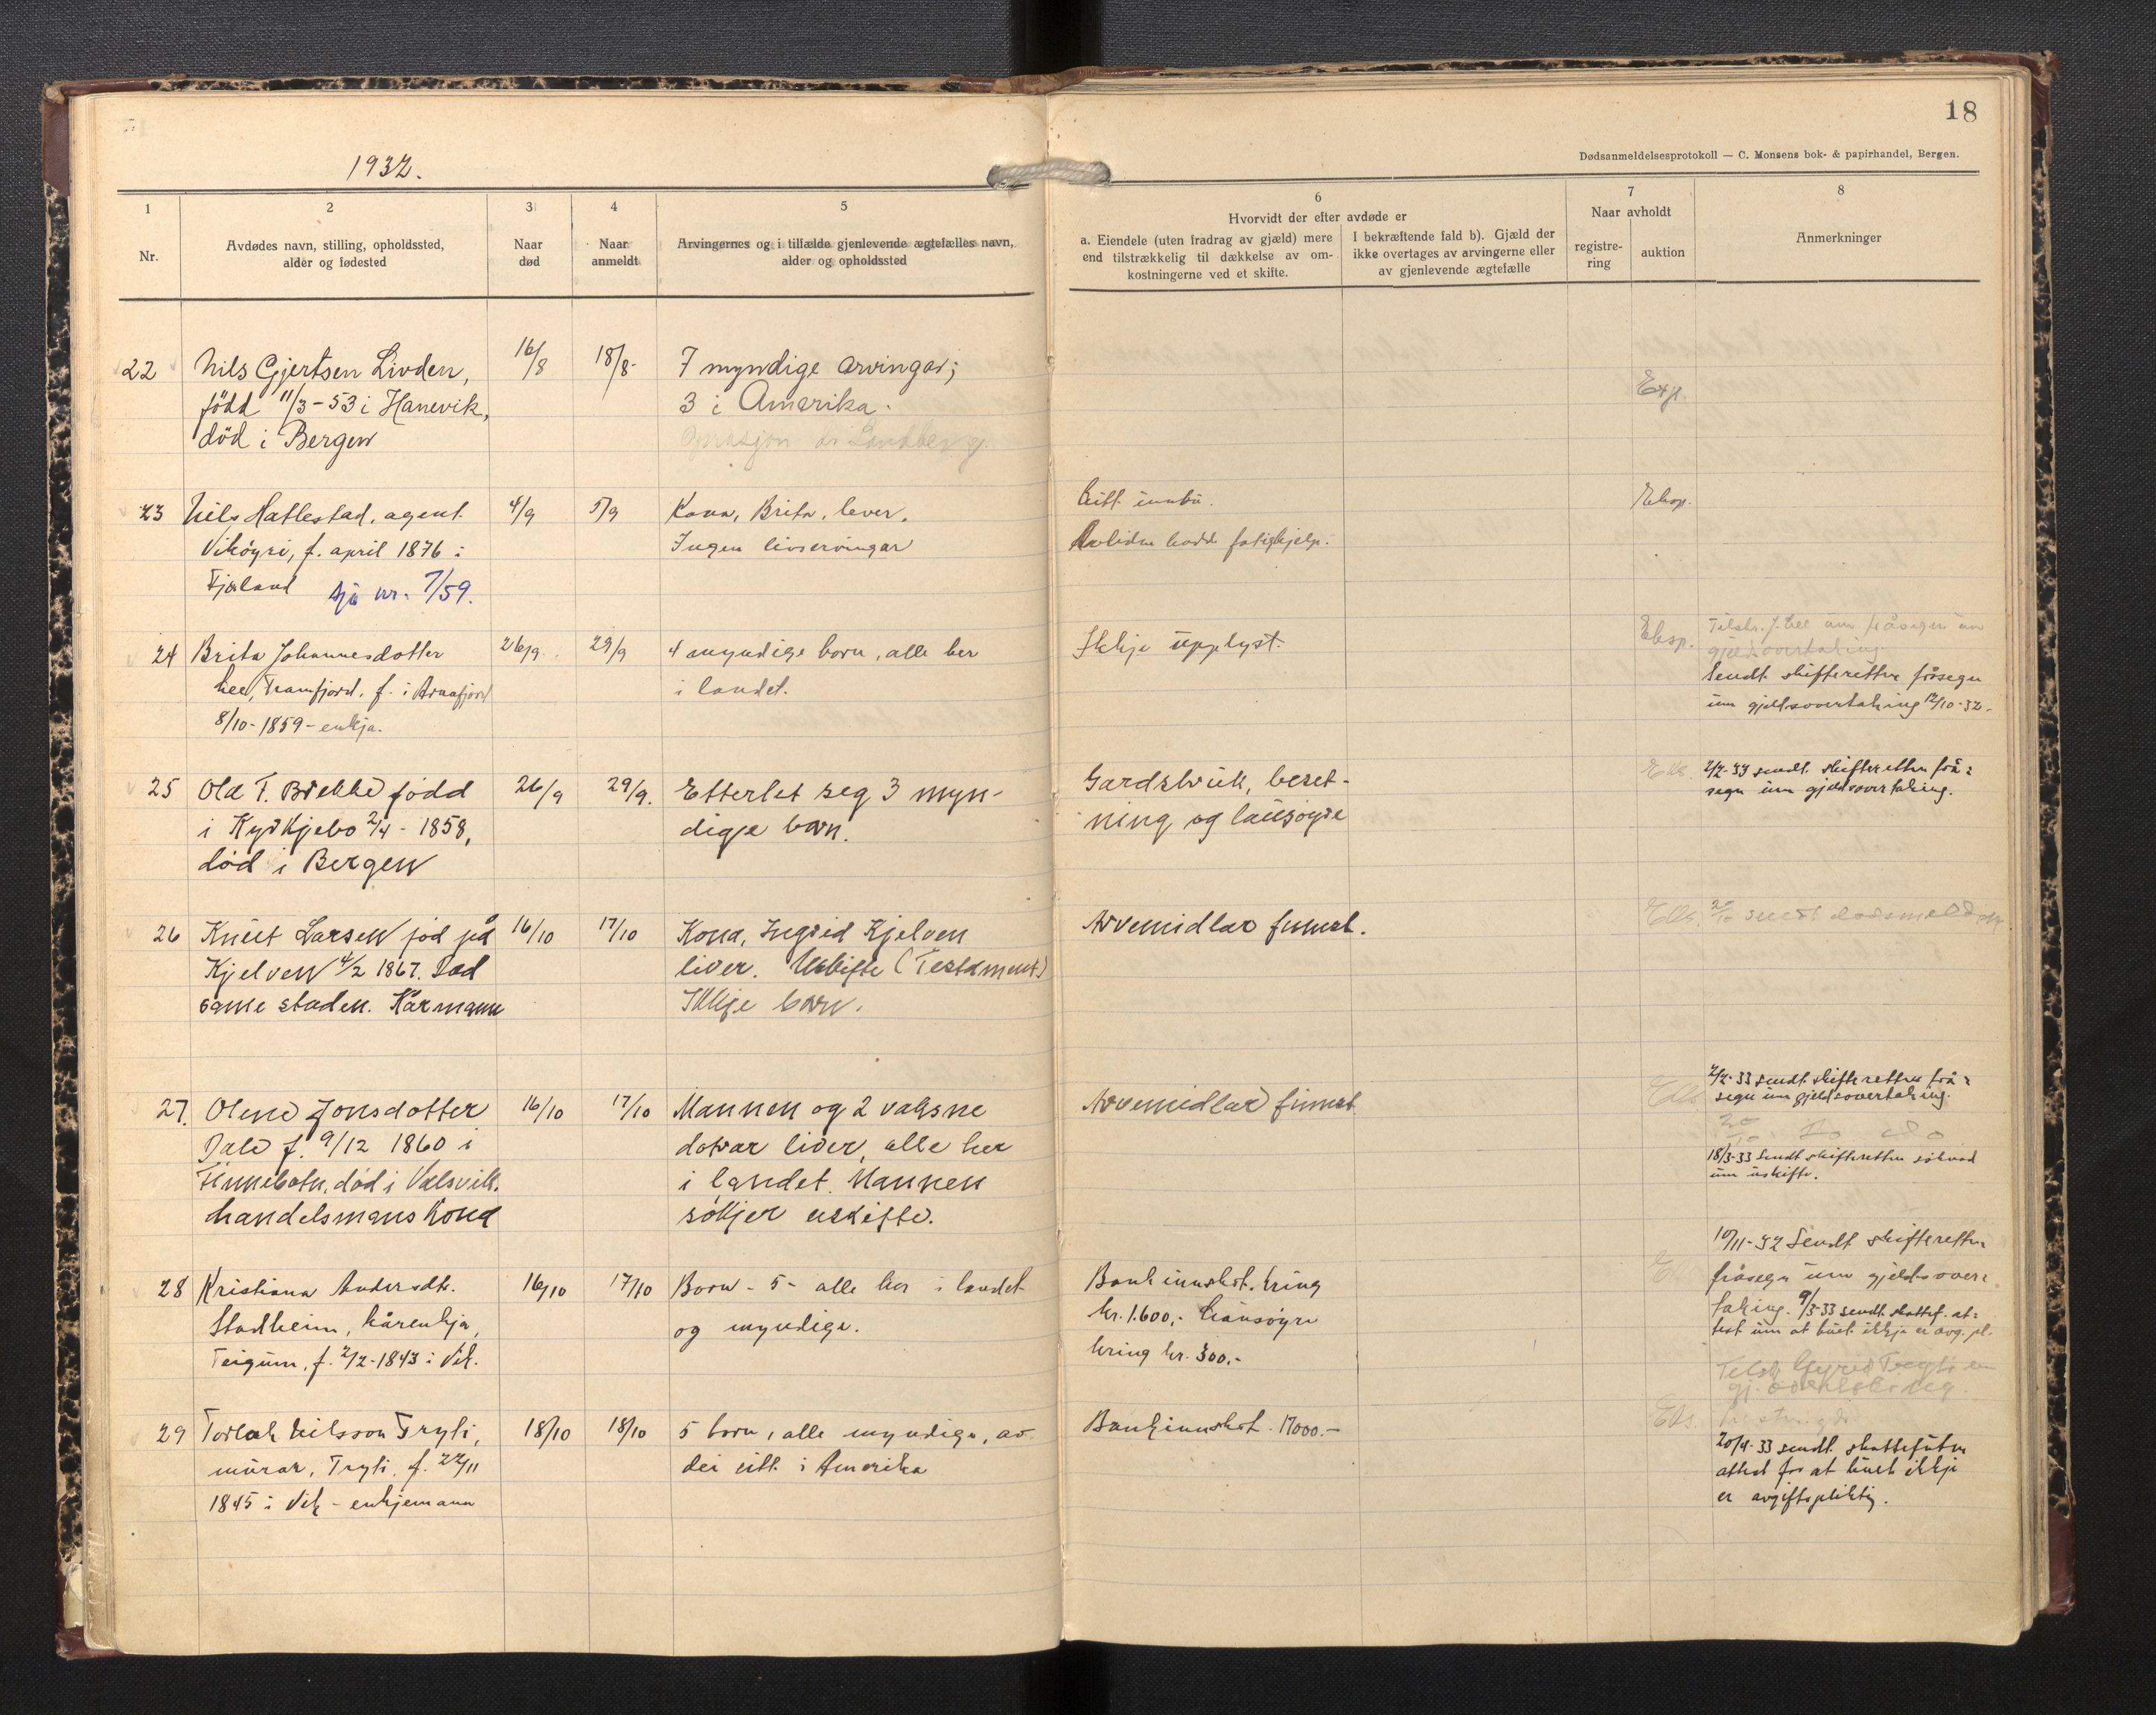 18
Dødsanmeldelsesprotokoll — C. Monsens bok- & papirhandel, Bergen.
1932.
1
2
3
4
5
6
7
8
Nr.
Avdødes navn, stilling, opholdssted,
alder og fødested
Naar
død
Naar
anmeldt
Arvingernes og i tilfælde gjenlevende ægtefælles navn,
alder og opholdssted
Hvorvidt der efter avdøde er
a. Eiendele (uten fradrag av gjæld) mere
end tilstrækkelig til dækkelse av om-
kostningerne ved et skifte.
I bekræftende fald b). Gjæld der
ikke overtages av arvingerne eller
av gjenlevende ægtefælle
Naar avholdt
registre-
ring
auktion
Anmerkninger
22 Nils Gjertsen Livden, 16/8 18/8- 7 myndige arvingar;
född 11/3-53 i Hanevik, 3 i Amerika. Exp.
död i Bergen
23 Nils Hatlestad, agent. 4/9 5/9 Kona, Brita, lever. Litt innbu. Eksp.
Vikøyri, f. april 1876 i Ingen livservingar Avlidne hadde fatighjelp.
Fjærland sjå nr. 7/59.
24 Brita Johannesdotter 26/9 29/9 4 myndige born, alle her Ikkje upplyst. Eksp.
Lee, Framfjord, f. i Arnafjord i landet. Sendt skifteretten fråsegn
8/10-1859- enkja. um gjeldsovertaking 12/10-32.
25 Ola T. Brekke född 26/9 29/9. Etterlet seg 3 myn- Gardsbruk, beset- 2/2-33 sendt skifteretten frå=
i Kyrkjebø 2/4-1858, dige born. ning og lausøyre segn um gjeldsovertaking.
död i Bergen
26 Knut Larsen född på 16/10 17/10 Kona, Ingrid Kjelven Arvemidlar finnst. 20/10 sendt dødsmeld
Kjelven 4/2 1867. Död liver. Uskifte (Testament)
same staden. Kårmann Ikkje born.
27. Olene Jonsdotter 16/10 17/10 Mannen og 2 vaksne Arvemidlar finnst 2/2-33 sendt skifteretten frå=
segn um gjeldsovertaking.
Dale f. 9/12 1860 i dotrar liver, alle her
Finnebotn, död i Valsvik. i landet. Mannen 18/3-33 Sendt skifteretten söknad
um uskifte.
handelsmans kona søkjer uskifte.
28 Kristiana Andersdtr. 16/10 17/10 Born - 5 - alle her i landet Bankinnskot kring 10/11-32 Sendt skifteretten
fråsegn um gjeldsover=
Stadheim, kårenkja, og myndige. kr. 1.600,- Lausøyre taking. 9/3-33 sendt skattef. at=
test um at buet ikkje er avg. pl.
Teigum, f. 2/2-1843 i Vik. kring kr. 300.-
29 Torlak Nilsson Tryti, 18/10 18/10 5 born, alle myndige, av Bankinnskot. 17000.-
murar, Tryti, f. 22/11 dei eitt i Amerika 20/4-33 sendt skattefuten
1845 i Vik - enkjemann attest for at buet ikkje
er avgiftspliktig.